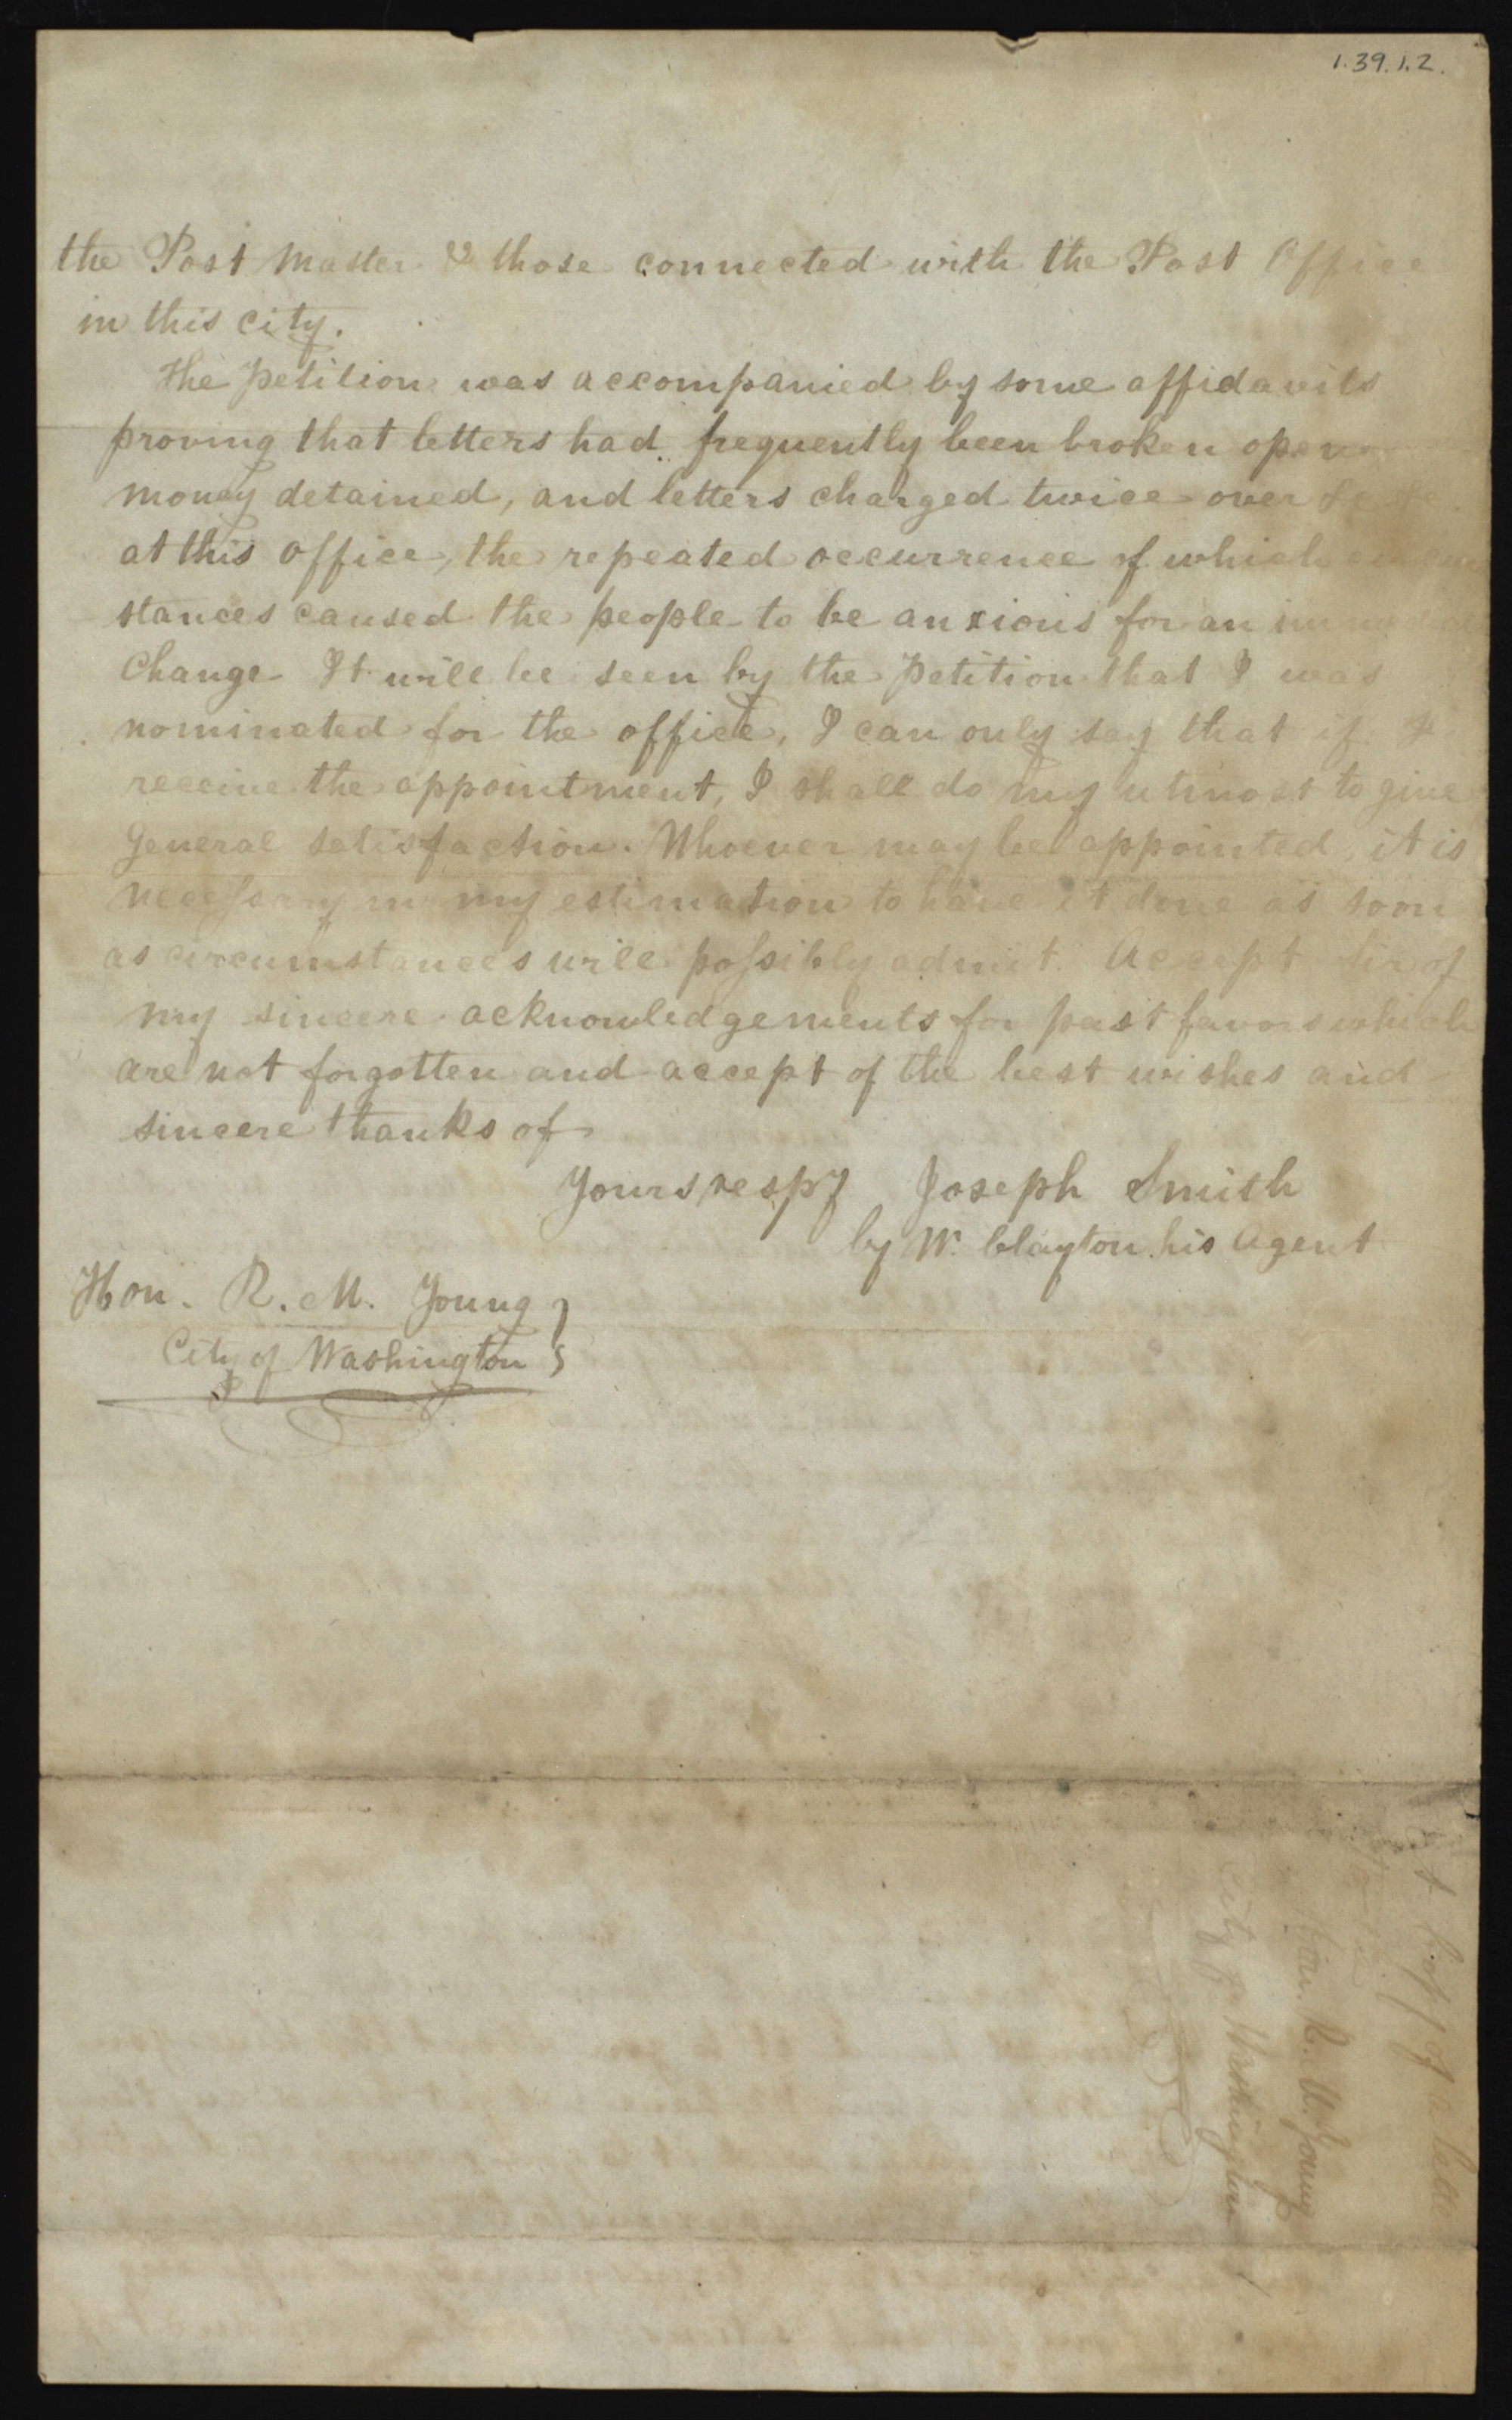 1.39.1.2.
the Post Master & those connected with the Post Office
in this city.
The petition was accompanied by some affidavits
proving that letters had frequently been broken open
money detained, and letters charged twice over
at this office, the repeated occurrence of which
stances caused the people to be anxious for an
change. It will be seen by the petition that I was
nominated for the office, I can only say that if I
receive the appointment, I shall do my utmost to give
general satisfaction. Whoever may be appointed, it is
necessary in my estimation to have it done as soon
as circumstances will possibly admit. Accept sir of
my sincere acknowledgements for past favors which
are not forgotten and accept of the best wishes and
sincere thanks of
Yours respy Joseph Smith
by W. Clayton his Agent
Hon. R. M. Young
City of Washington
Copy of a letter
Hon. R. M. Young
City of Washington